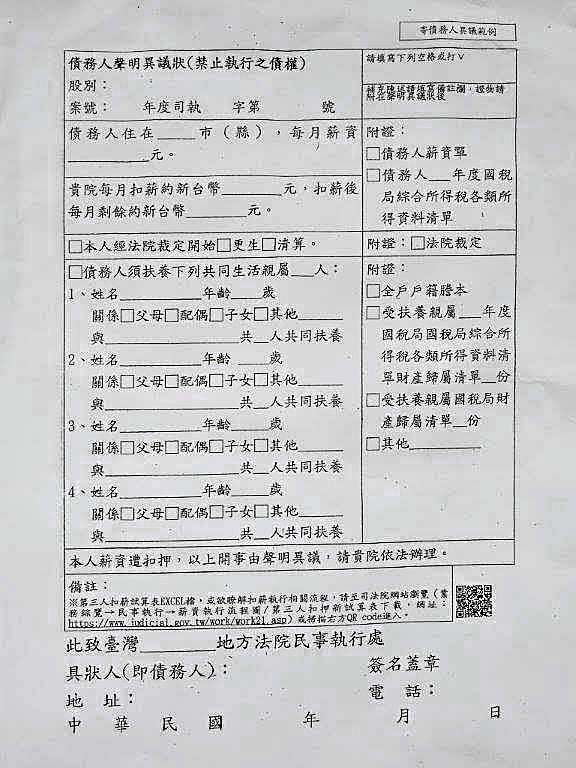 債務人異議範例
債務人聲明異議狀(禁止執行之債權)
股別:
案號: 年度司執 字第 號
請填寫下列空格或打V
補充陳述請填寫備註欄,證物請
附在聲明異議狀後
債務人住在_____市(縣),每月薪資
__________元。
貴院每月扣薪約新台幣________元,扣薪後
每月剩餘約新台幣________元。
附證:
□債務人薪資單
□債務人___年度國稅
局綜合所得稅各類所
得資料清單
□本人經法院裁定開始□更生□清算。
附證:□法院裁定
□債務人須扶養下列共同生活親屬___人:
1、姓名__________年齡____歲
關係□父母□配偶□子女□其他_____
與________________共__人共同扶養
2、姓名__________年齡____歲
關係□父母□配偶□子女□其他_____
與________________共__人共同扶養
3、姓名__________年齡____歲
關係□父母□配偶□子女□其他_____
與________________共__人共同扶養
4、姓名__________年齡____歲
關係□父母□配偶□子女□其他_____
與________________共__人共同扶養
附證:
□全戶戶籍謄本
□受扶養親屬___年度
國稅局國稅局綜合所
得稅各類所得資料清
單財產歸屬清單__份
□受扶養親屬國稅局財
產歸屬清單__份
□其他__________
本人薪資遭扣押,以上開事由聲明異議,請貴院依法辦理。
備註:
※第三人扣薪試算表EXCEL檔,或欲瞭解扣薪執行相關流程,請至司法院網站瀏覽(業
務綜覽→民事執行→薪資執行流程圖/第三人扣押薪試算表下載,網址:
https://www.judicial.gov.tw/work/work21.asp)或掃描右方QR code進入。
此致臺灣________地方法院民事執行處
具狀人(即債務人): 簽名蓋章
地 址: 電 話:
中 華 民 國 年 月 日